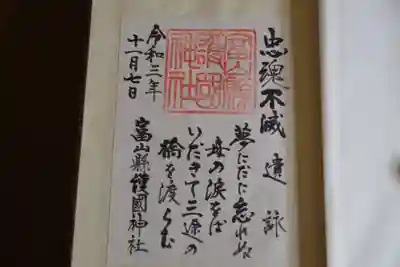 忠魂不滅
遺詠
夢にだに忘れぬ
母の涙をば
いだきて三途の
橋を渡らむ
富山縣護國神社
令和三年
十一月七日